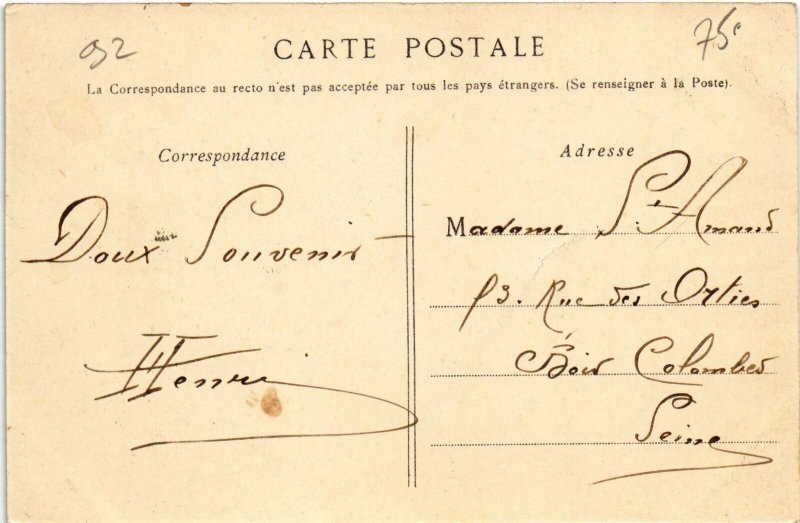 92
75c
CARTE POSTALE
La Correspondance au recto n'est pas acceptée par tous les pays étrangers. (Se renseigner à la Poste).
Correspondance
Doux Souvenir
Henri
Adresse
Madame St Amand
13. Rue des Orties
Bois Colombes
Seine